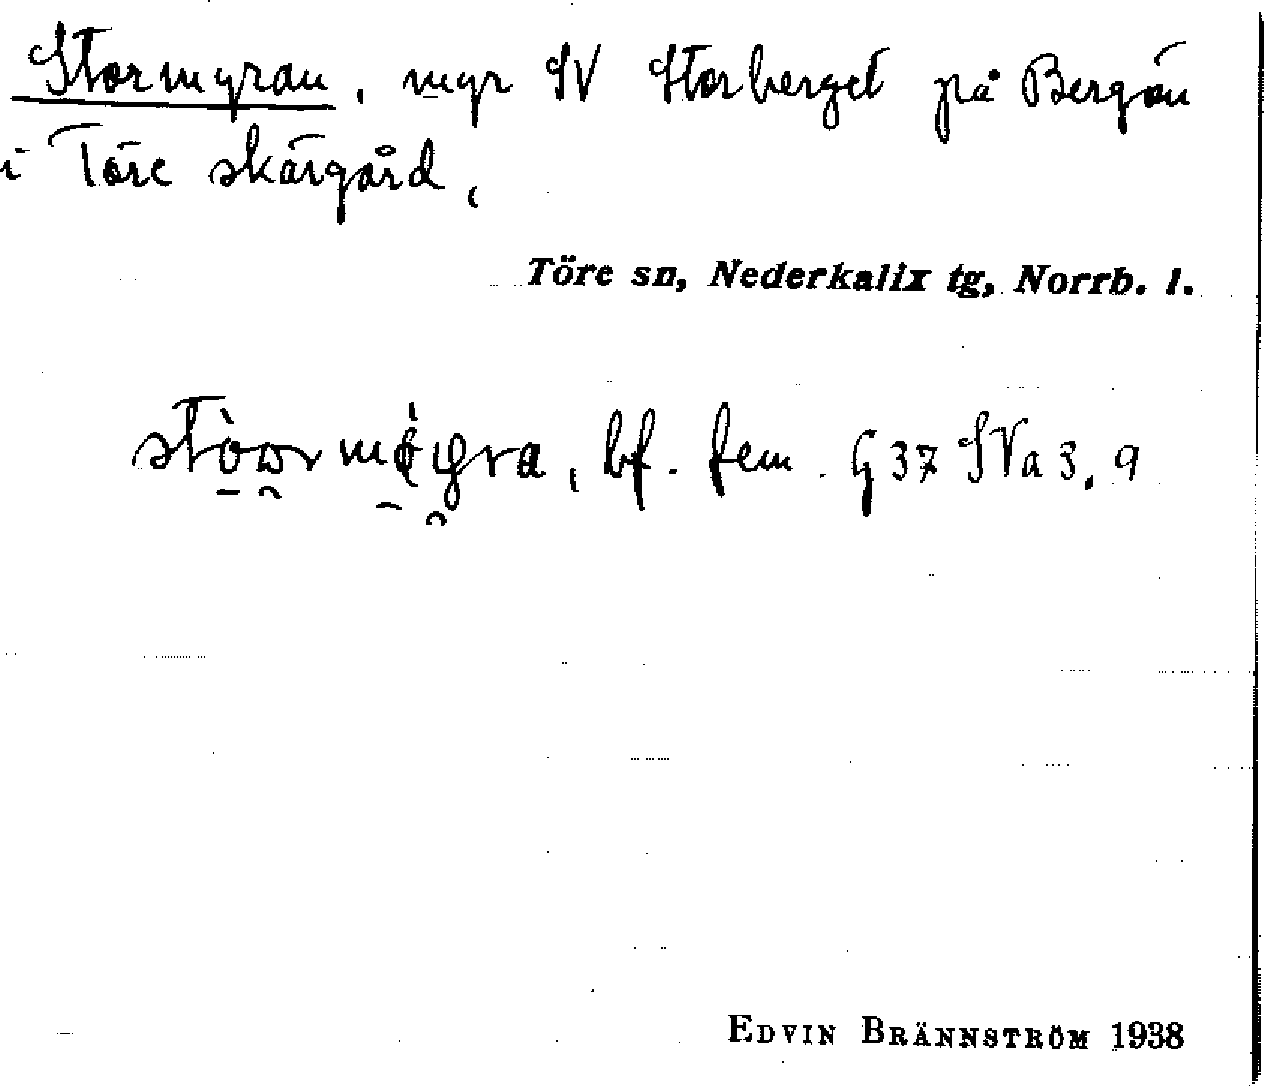 Stormyran, myr SV Storberget på Bergön
i Töre skärgård,
Töre sn, Nederkalix tg, Norrb. l.
bf. fem. G 37 SVa 3, 9
EDVIN BRÄNNSTRÖM 1938